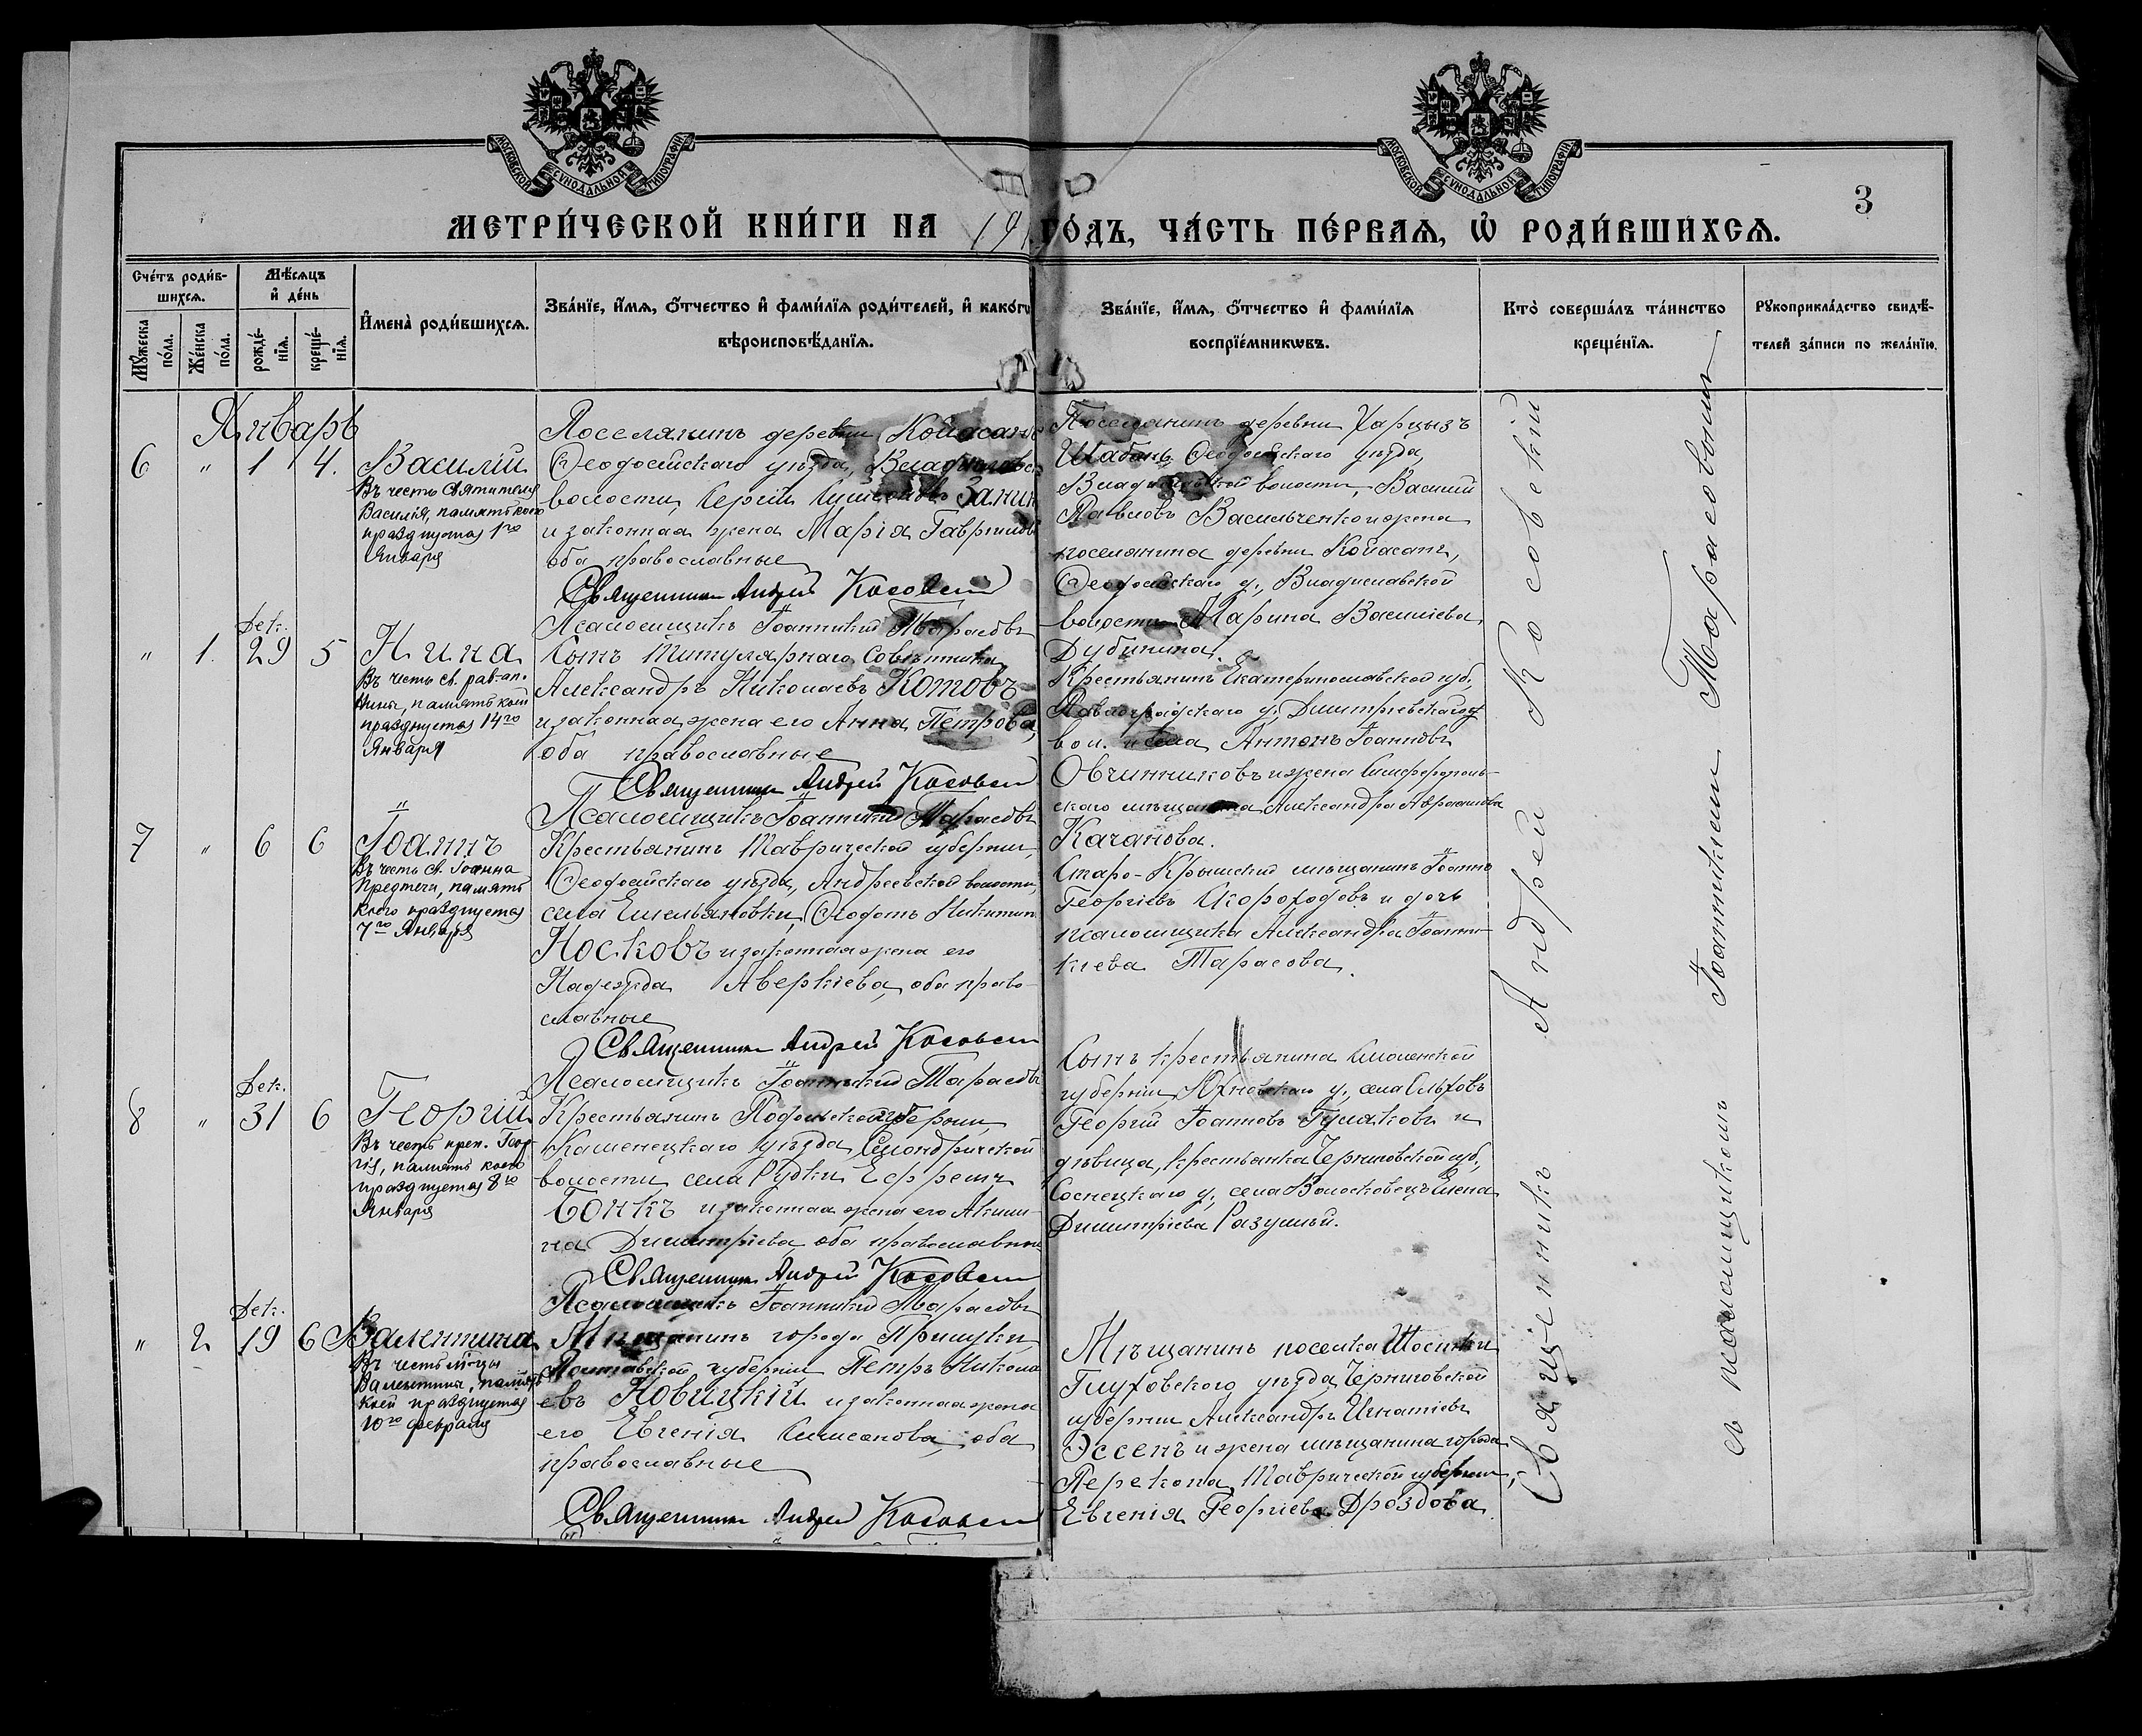 МОСКОВСКОЙ СѴНОДАЛЬНОЙ ТИПОГРАФІИ
МОСКОВСКОЙ СѴНОДАЛЬНОЙ ТИПОГРАФІИ
3
МЕТРИ́ЧЕСКОЙ КНИ́ГИ НА 191 ГО́ДЪ, ЧА́СТЬ ПЕ́РВАѦ, Ѡ҆ РОДИ́ВШИХСѦ.
Сче́тъ роди́в-
шихсѧ.
Мꙋ́жеска по́ла.
Же́нска по́ла.
Мѣ́сѧцъ
и҆ де́нь
рожде́-нїѧ.
креще́-нїѧ.
И҆мена̀ роди́вшихсѧ.
Зва́нїе, и҆́мѧ, ѻ҆́тчество и҆ фами́лїѧ роди́телей, и҆ како́гѡ
вѣроисповѣ́данїѧ.
Зва́нїе, и҆́мѧ, ѻ҆́тчество и҆ фами́лїѧ
воспрїе́мникѡвъ.
Кто̀ соверша́лъ та́инство
креще́нїѧ.
Рꙋкоприкла́дство свидѣ́-
телей за́писи по жела́нїю.
Январь
6 " 1 4. Василій
Въ честь Святителя
Василія, память коего
празднуется 1го
Января
Поселянинъ деревни Койасанъ
Ѳеодосійскаго уѣзда, Владиславск
волости, Сергій Занин
и законная жена Марія Гаврилов
оба православные
Священникъ Андрей Косовскій
Псаломщикъ Іоанникій Тарасовъ
Поселянинъ деревни Харцызъ
Шабань Ѳеодосійскаго уѣзда,
Владиславской волости, Василій
Павловъ Васильченко и жена
поселянина деревни Койасанъ,
Ѳеодосійскаго у., Владиславской
волости Марина Василіева
Дубинина.
Дек.
" 1. 29 5 Нина
Въ честь св. рав-ап.
Нины, память коей
празднуется 14го
Января
Сынъ Титулярнаго Совѣтника
Александръ Николаевъ Котовъ
и законная жена его Анна Петрова,
оба православные
Священникъ Андрей Косовскій
Псаломщикъ Іоанникій Тарасовъ
Крестьянинъ Екатеринославской губ.,
Павлоградскаго у., Димитріевской
вол. и села Антонъ Іоанновъ
Овчинниковъ и жена Симферополь-
скаго мѣщанина Александра Аѳанасіева
Качанова.
7 " 6 6 Іоаннъ
Въ честь св. Іоанна
Предтечи, память
коего празднуется
7го Января
Крестьянинъ Таврической губерніи,
Ѳеодосійскаго уѣзда, Андреевской волости,
села Емельяновки, Ѳеодотъ Никитин
Носковъ и законная жена его
Надежда Аверкіева, оба право-
славные
Священникъ Андрей Косовскій
Псаломщикъ Іоанникій Тарасовъ
Старо-Крымскій мѣщанинъ Іоаннъ
Георгіевъ Скороходовъ и дочь
псаломщика Александра Іоанни-
кіева Тарасова.
Дек.
8 " 31 6 Георгій
Въ честь преп. Геор-
гія, память коего
празднуется 8го
Января
Крестьянинъ Подольской губерніи
Каменецкаго уѣзда Смотричской
волости села Рудки Ефремъ
Бонкъ и законная жена его Акили-
на Димитріева, оба православные
Священникъ Андрей Косовскій
Псаломщикъ Іоанникій Тарасовъ
Сынъ крестьянина Смоленской
губерніи Юхновскаго у., села
Георгій Іоанновъ Гулаковъ и
дѣвица, крестьянка Черниговской губ.,
Сосницкаго у., села Волосковецъ Елена
Димитріева Разумѣй.
Дек.
" 2 19 6 Валентина
Въ честь м-цы
Валентины, память
коей празднуется
10го февраля
Мѣщанинъ города Прилуки
Полтавской губерніи Петръ Никола
евъ Новицкій и законная жена
его Евгенія Симеонова, оба
православные
Священникъ Андрей Косовскій
Мѣщанинъ поселка Шостки
Глуховского уѣзда Черниговской
губерніи Александръ Игнатіевъ
Эссенъ и жена мѣщанина города
Перекопа, Таврической губерніи,
Евгенія Георгіева Дроздова.
Священникъ Андрей Косовскій
съ псаломщикомъ Іоанникіемъ Тарасовымъ